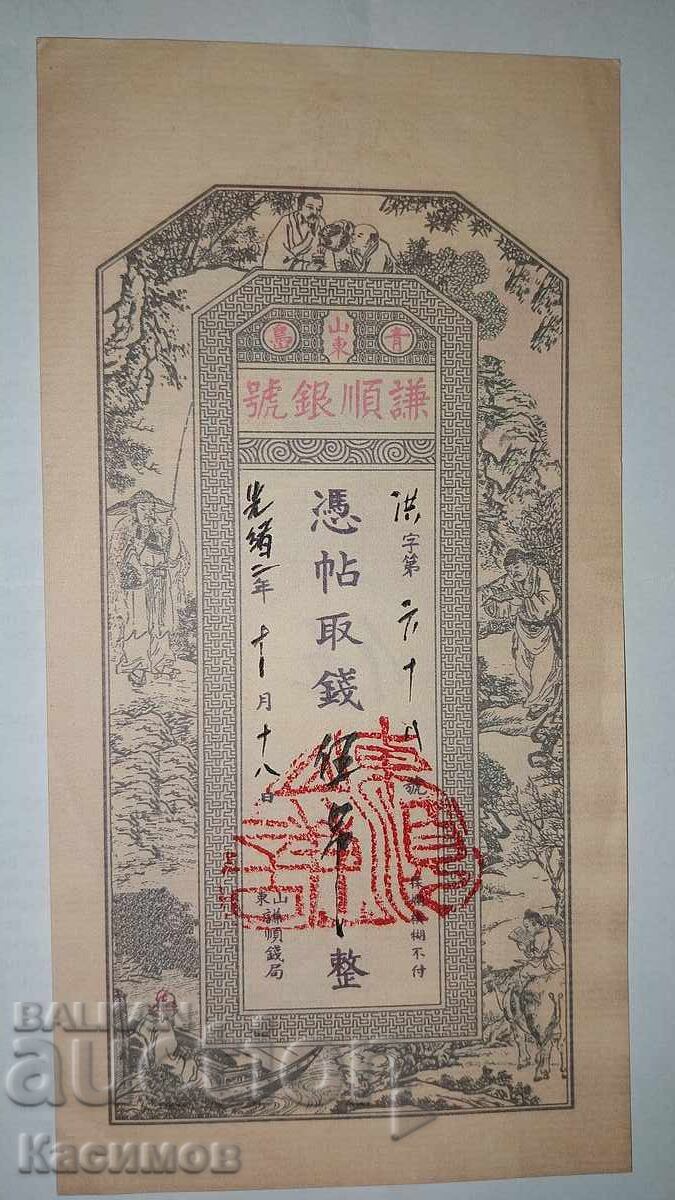 青山東島
謙順銀號
洪字第六十八號
憑帖取錢伍串整
光緒二年十一月十八日
糊不付
山東謙順錢局
BALKAN
auction
Касимов